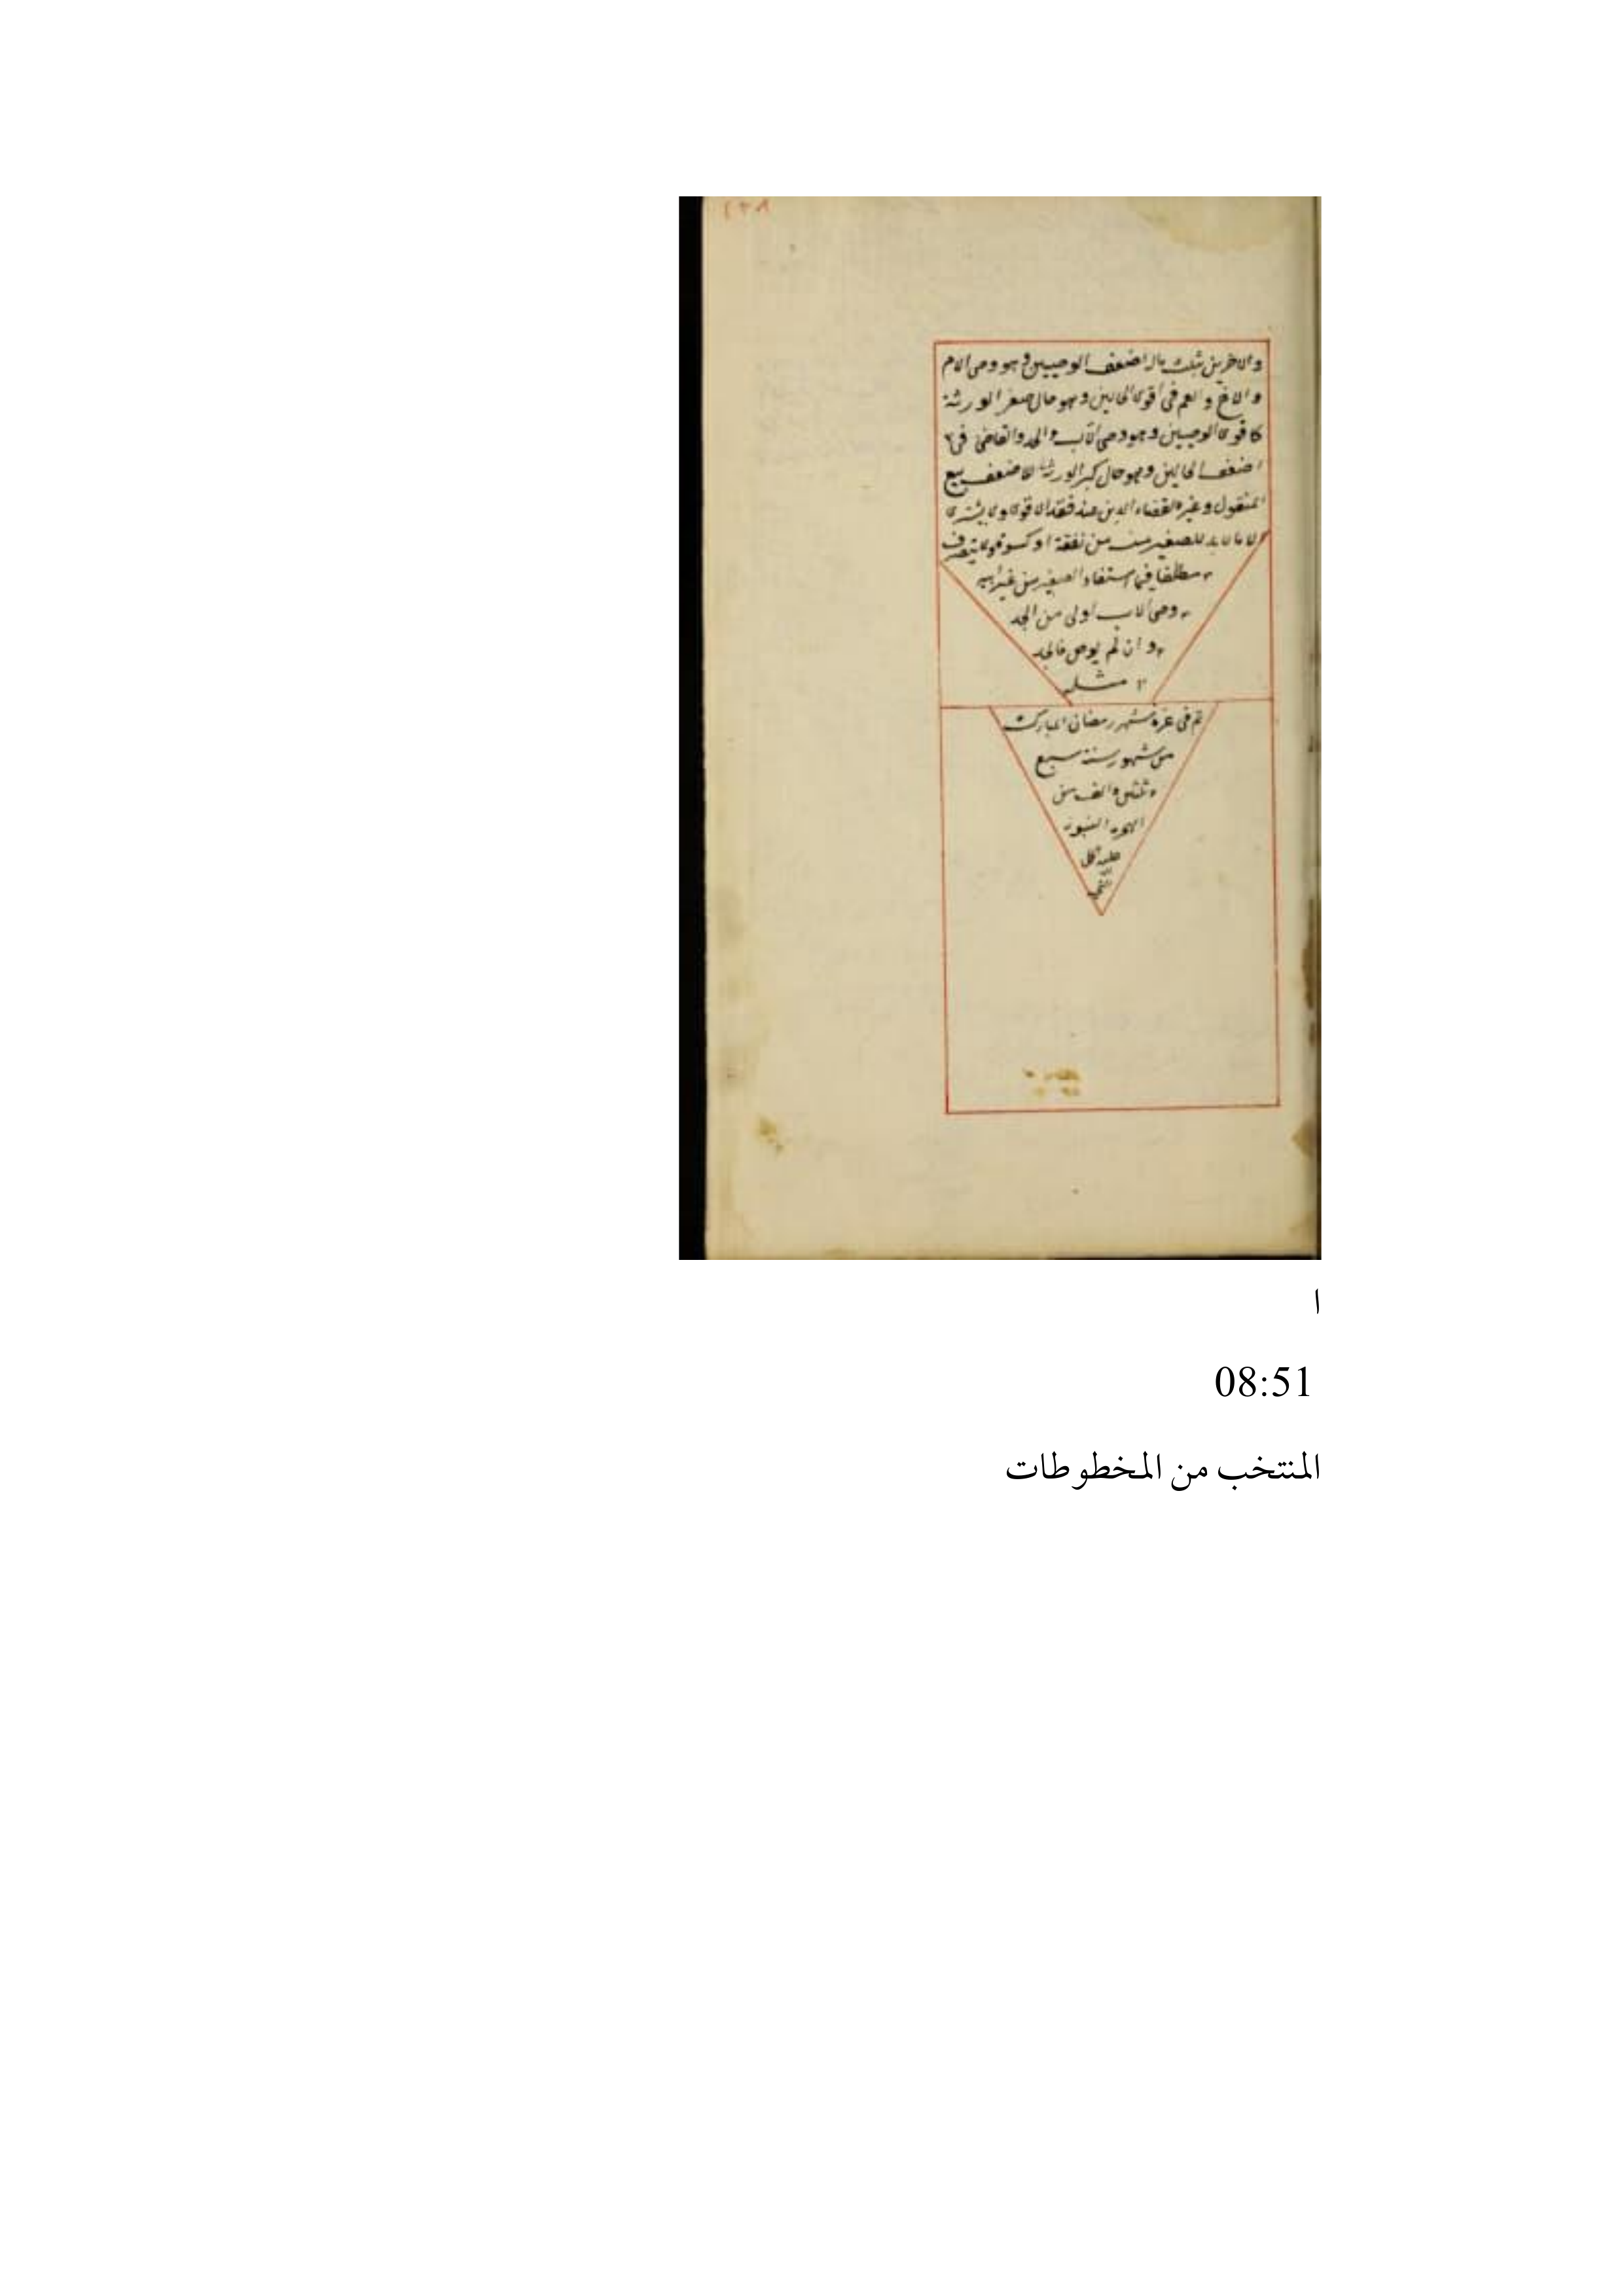 والاخرين بثلث ماله اضعف الوصيين وهو وصى الام
والاخ والعم فى اقوى الحالين وهو حال صغر الورثة
كاقوى الوصيين وهو وصى الاب والجد والقاضى فى
اضعف الحالين وهو حال كبر الورثة للاضعف بيع
المنقول وغيره لقضاء الدين عند فقد الاقوى ولا يشترى
الا ما لا بد للصغير منه من نفقة او كسوة ولا يتصرف
مطلقا فيما استفاد الصغير من غير ابيه
وصى الاب اولى من الجد
وان لم يوص فالجد
مثله
تم فى غرة شهر رمضان المبارك
من شهور سنة سبع
والف من
الهجرة النبوية
عليه
ا
08:51
المنتخب من المخطوطات